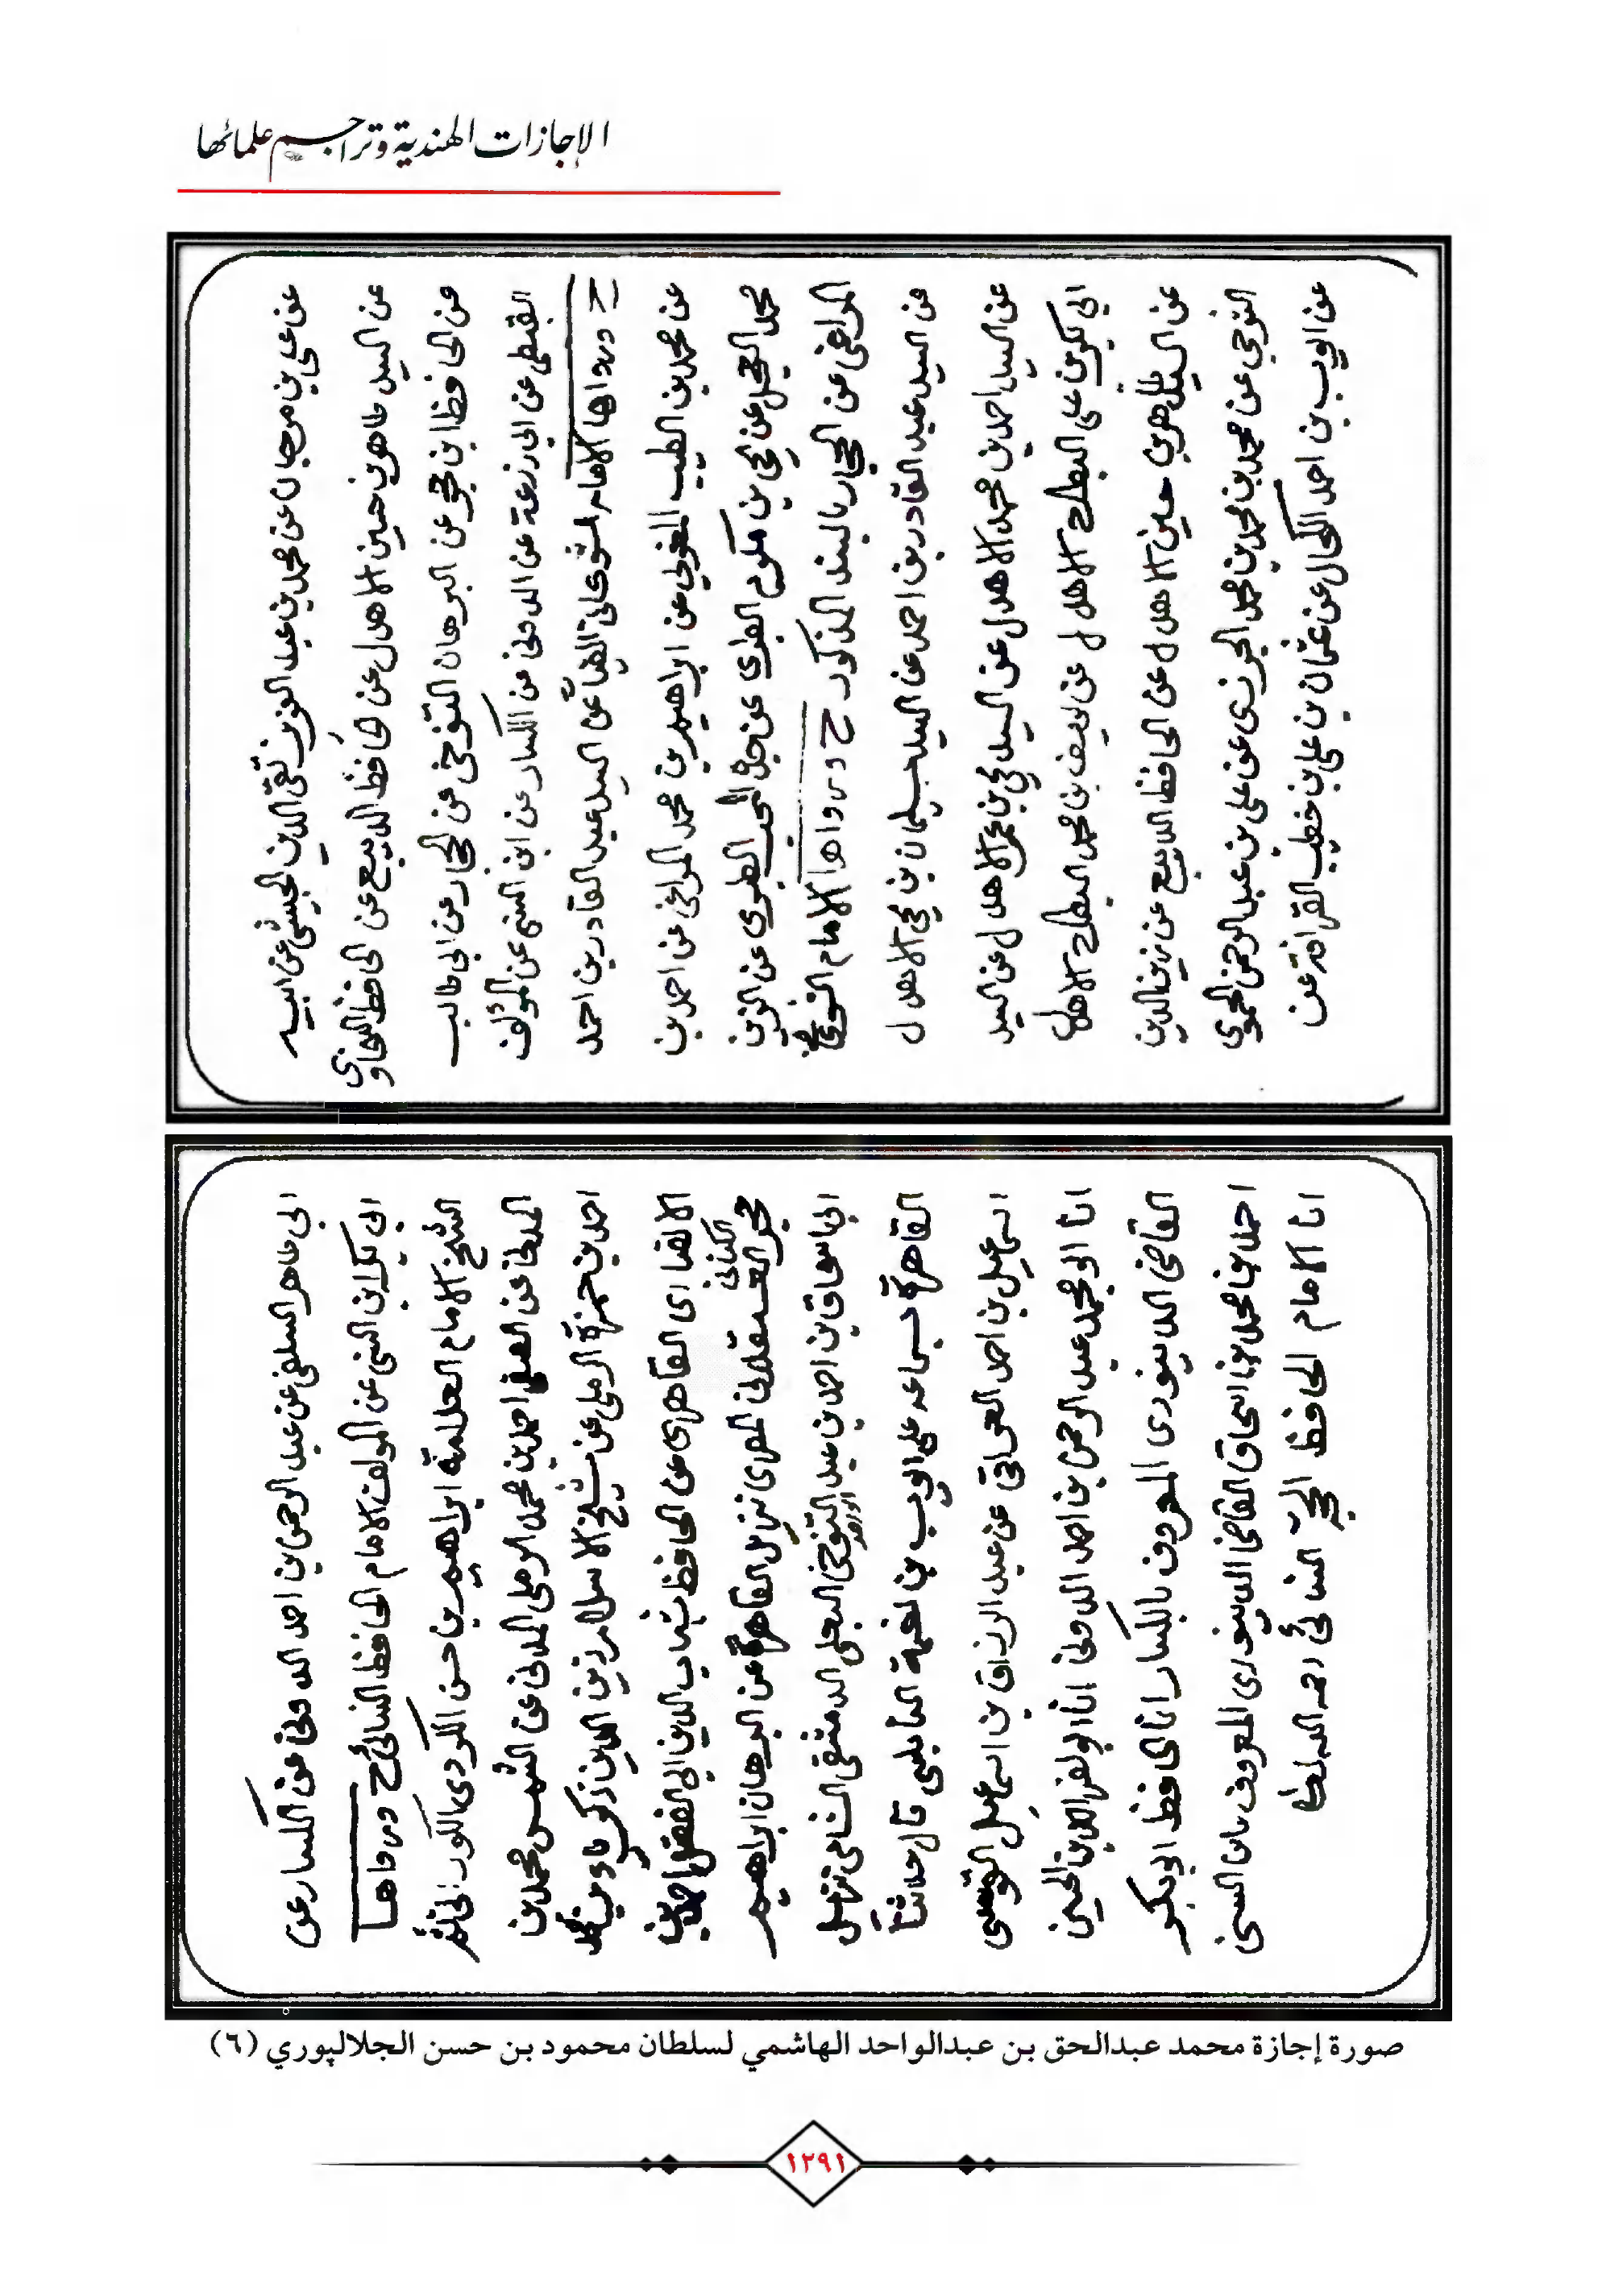 الإجازات الهندية وتراجم علمائها
عن علي بن مرجان عن محمد بن عبد العزيز تقي الدين الحبيشي عن ابيه
عن السيد طاهر بن حسين الاهدل عن الحافظ الديبع عن الحافظ السخاوي
عن الحافظ ابن حجر عن البرهان التنوخي عن الحجار عن ابي طالب
القبيطي عن ابي زرعة عن الدوني عن الكسار عن ابن السني عن المؤلف
ح ورواها الامام الشوكاني ايضا عن السيد عبد القادر بن احمد
عن محمد بن الطيب المغربي عن ابراهيم بن محمد المراغي عن احمد بن
محمد العجل عن يحيى بن مكرم الطبري عن جده المحب الطبري عن الزين
المراغي عن الحجار بالسند المذكور ح ورواها الامام الشوكاني
عن السيد عبد القادر بن احمد عن السيد سليمان بن يحيى الاهدل
عن السيد احمد بن محمد الاهدل عن السيد يحيى بن عمر الاهدل عن السيد
ابي بكر بن علي البطاح الاهدل عن يوسف بن محمد البطاح الاهدل
عن السيد طاهر بن حسين الاهدل عن الحافظ الديبع عن زين الدين
الشرجي عن محمد بن محمد بن محمد الجزري عن علي بن عبد الرحمن الحموي
عن ايوب بن احمد الكحال عن عثمان بن علي بن خطيب القرافة عن
ابي طاهر السلفي عن عبد الرحمن بن احمد الدوني عن الكسار عن
ابي بكر ابن السني عن المولف الامام الحافظ النسائي ح ورواها
الشيخ الامام العلامة ابراهيم بن حسن الكردي الكوراني ثم
المدني عن الصفي احمد بن محمد المدني عن الشمس محمد بن
احمد بن حمزة الرملي عن شيخ الاسلام زين الدين زكريا بن محمد
الانصاري القاهري عن الحافظ شهاب الدين ابي الفضل احمد بن
حجر الكناني العسقلاني المصري نزيل القاهرة عن البرهان ابراهيم
ابي اسحاق بن احمد بن عبد الواحد التنوخي البعلي الدمشقي الشامي نزيل
القاهرة بسماعه على ايوب بن نعمة النابلسي قال حدثنا
اسماعيل بن احمد العراقي عن عبد الرزاق بن اسماعيل القومسي
انا ابو محمد عبد الرحمن بن احمد الدوني انا ابو نصر احمد بن الحسين
القاضي الدينوري المعروف بالكسار انا الحافظ ابو بكر
احمد بن محمد بن اسحاق القاضي الدينوري المعروف بابن السني
انا الامام الحافظ الحجة النسائي رحمه الله تعالى
صورة إجازة محمد عبدالحق بن عبدالواحد الهاشمي لسلطان محمود بن حسن الجلالپوري (٦)
١٢٩١